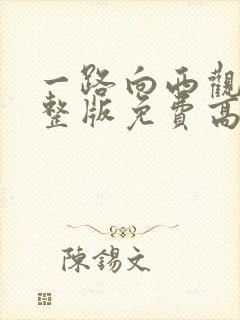 一路向西觀
整版免費高
陳錫文